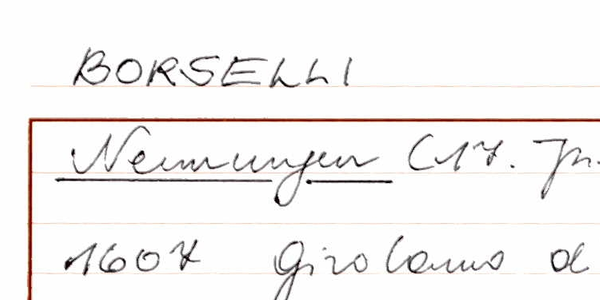 BORSELLI
Nennungen (17. Jh.
1607 Girolamo d